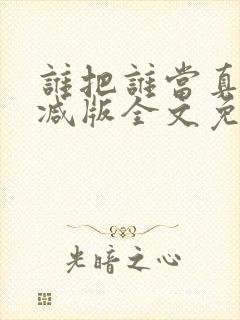 誰把誰當真
减版全文免
光暗之心